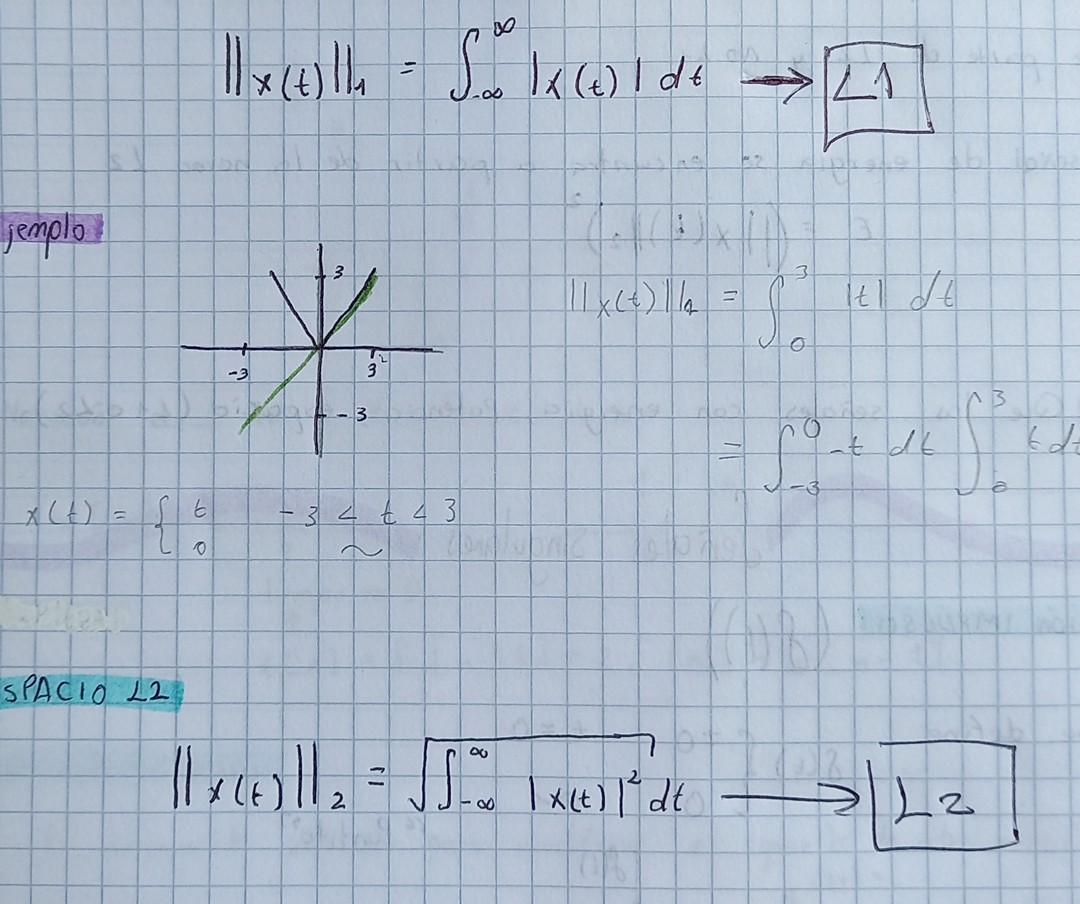 ||x(t)||₁ = ∫_{-∞}^{∞} |x(t)| dt → L1
jemplo
3
-3
3
-3
||x(t)||₁ = ∫_0^3 |t| dt
= ∫_{-3}^0 -t dt ∫_0^3 t dt
x(t) = { t -3 < t < 3
0 ~
SPACIO L2
||x(t)||₂ = √∫_{-∞}^{∞} |x(t)|² dt → L2